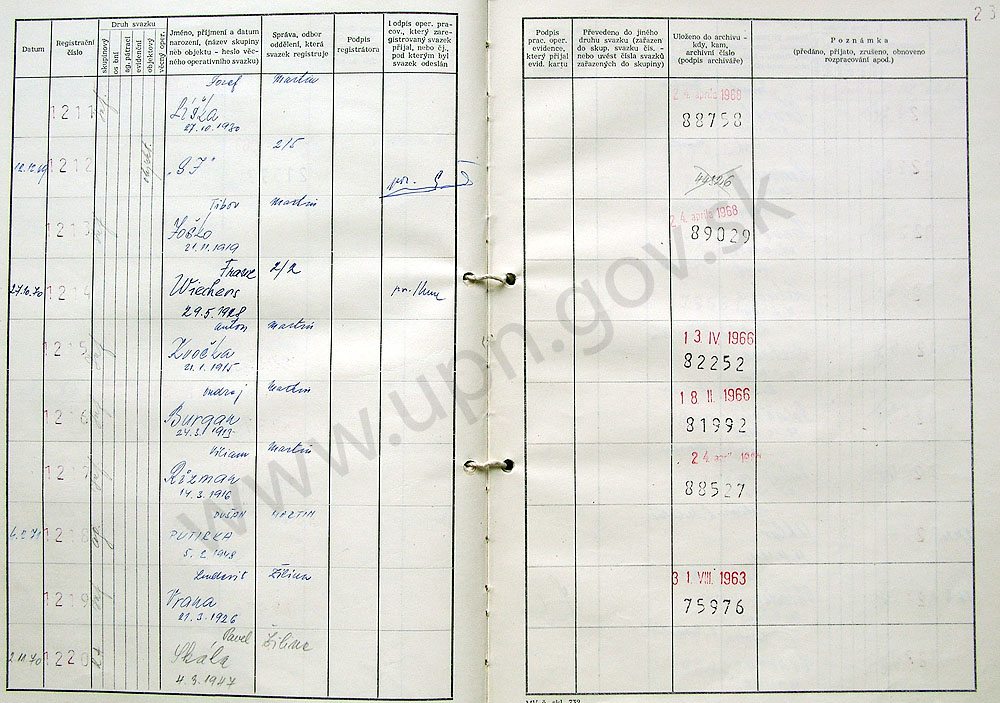 Datum
Registrační číslo
Druh svazku
skupinový
osobní
ag. pátrací
evidenční
objektový
věcný oper.
Jméno, příjmení a datum
narození, (název skupiny
neb objektu - heslo věc-
ného operativního svazku)
Správa, odbor
oddělení, která
svazek registruje
Podpis
registrátora
Podpis oper. pra-
cov., který zare-
gistrovaný svazek
přijal, nebo čj.,
pod kterým byl
svazek odeslán
Podpis
prac. oper.
evidence,
který přijal
evid. kartu
Převedeno do jiného
druhu svazku (zařazen
do skup. svazku čís. -
nebo uvést čísla svazků
zařazených do skupiny)
Uloženo do archivu -
kdy, kam,
archivní číslo
(podpis archiváře)
Poznámka
(předáno, přijato, zrušeno, obnoveno
rozpracování apod.)
23
Jozef Martin
1211 Líška 24. apríla 1968
27.10.1930 88758
2/5
12.12.69 1212 objekt. "SJ"
44326
Tibor Martin
1213 Joško 24. apríla 1968
21.11.1919 89029
Franc 2/2
27.10.70 1214 Wiechers
29.5.1928
Anton Martin
1215 Kvočka 13 IV. 1966
21.1.1915 82252
Ondrej Martin
1216 Burgan 18 II. 1966
24.3.1913 81992
Viliam Martin
1217 Rízman 24. apríla
14.3.1916 88527
DUŠAN MARTIN
6.2.71 1218 PUTIRKA
5.2.1948
Ludevit Žilina
1219 Vrana 31. VIII. 1963
21.3.1926 75976
Pavel Žilina
2.11.70 1220 Skála
4.3.1947
www.upn.gov.sk